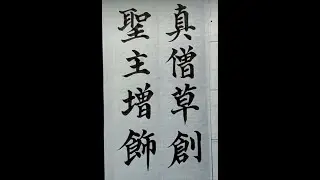 真僧草創
聖主増飾